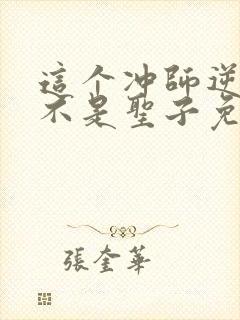 這个冲師逆
不是聖子免
張奎華